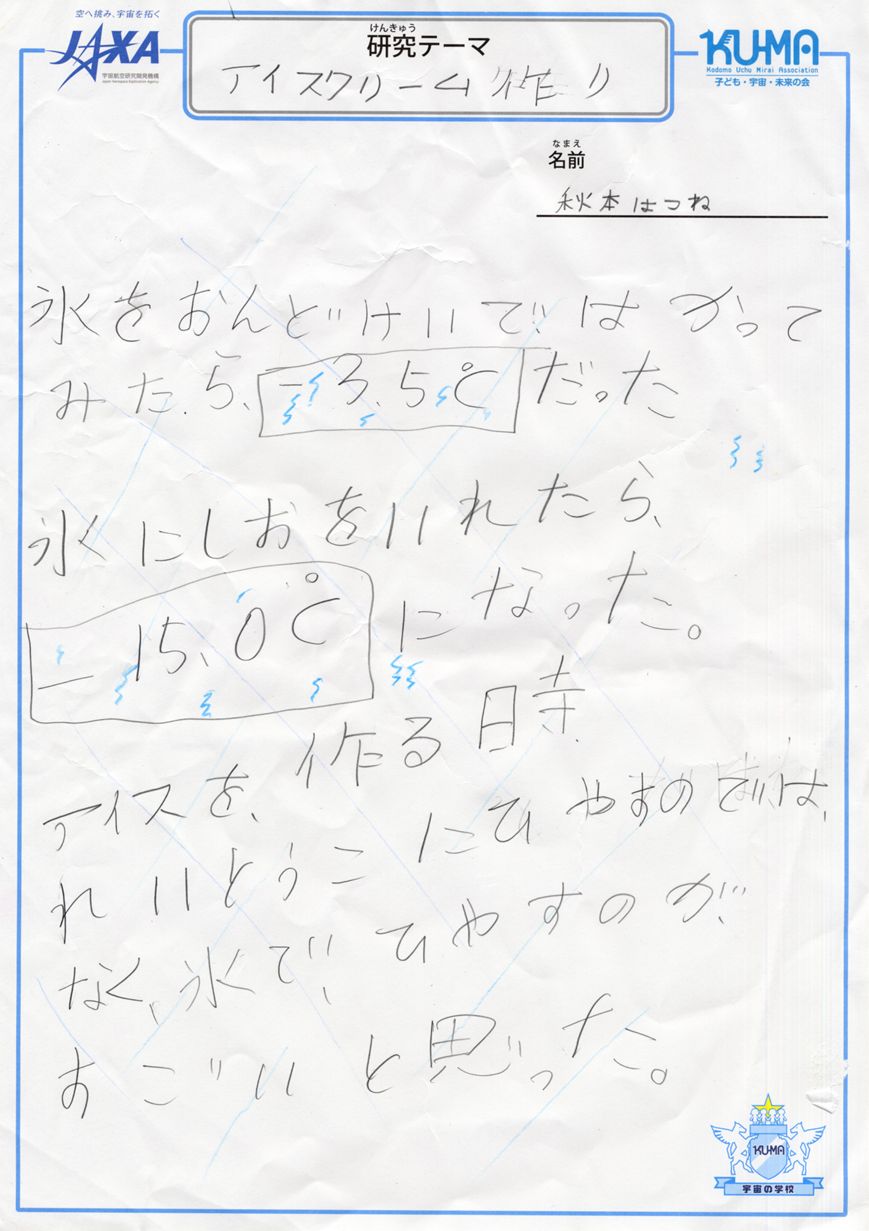 空へ挑み、宇宙を拓く
JAXA
宇宙航空研究開発機構
Japan Aerospace Exploration Agency
けんきゅう
研究テーマ
アイスクリーム作り
KU-MA
Kodomo Uchu Mirai Association
子ども・宇宙・未来の会
なまえ
名前
秋本はつね
氷をおんどけいではかって
みたら、-3.5℃だった
氷にしおをいれたら、
-15.0℃になった。
アイスを、作る時
れいとうこにひやすのでは、
なく、氷で、ひやすのが、
すごいと思った。
KU-MA
宇宙の学校